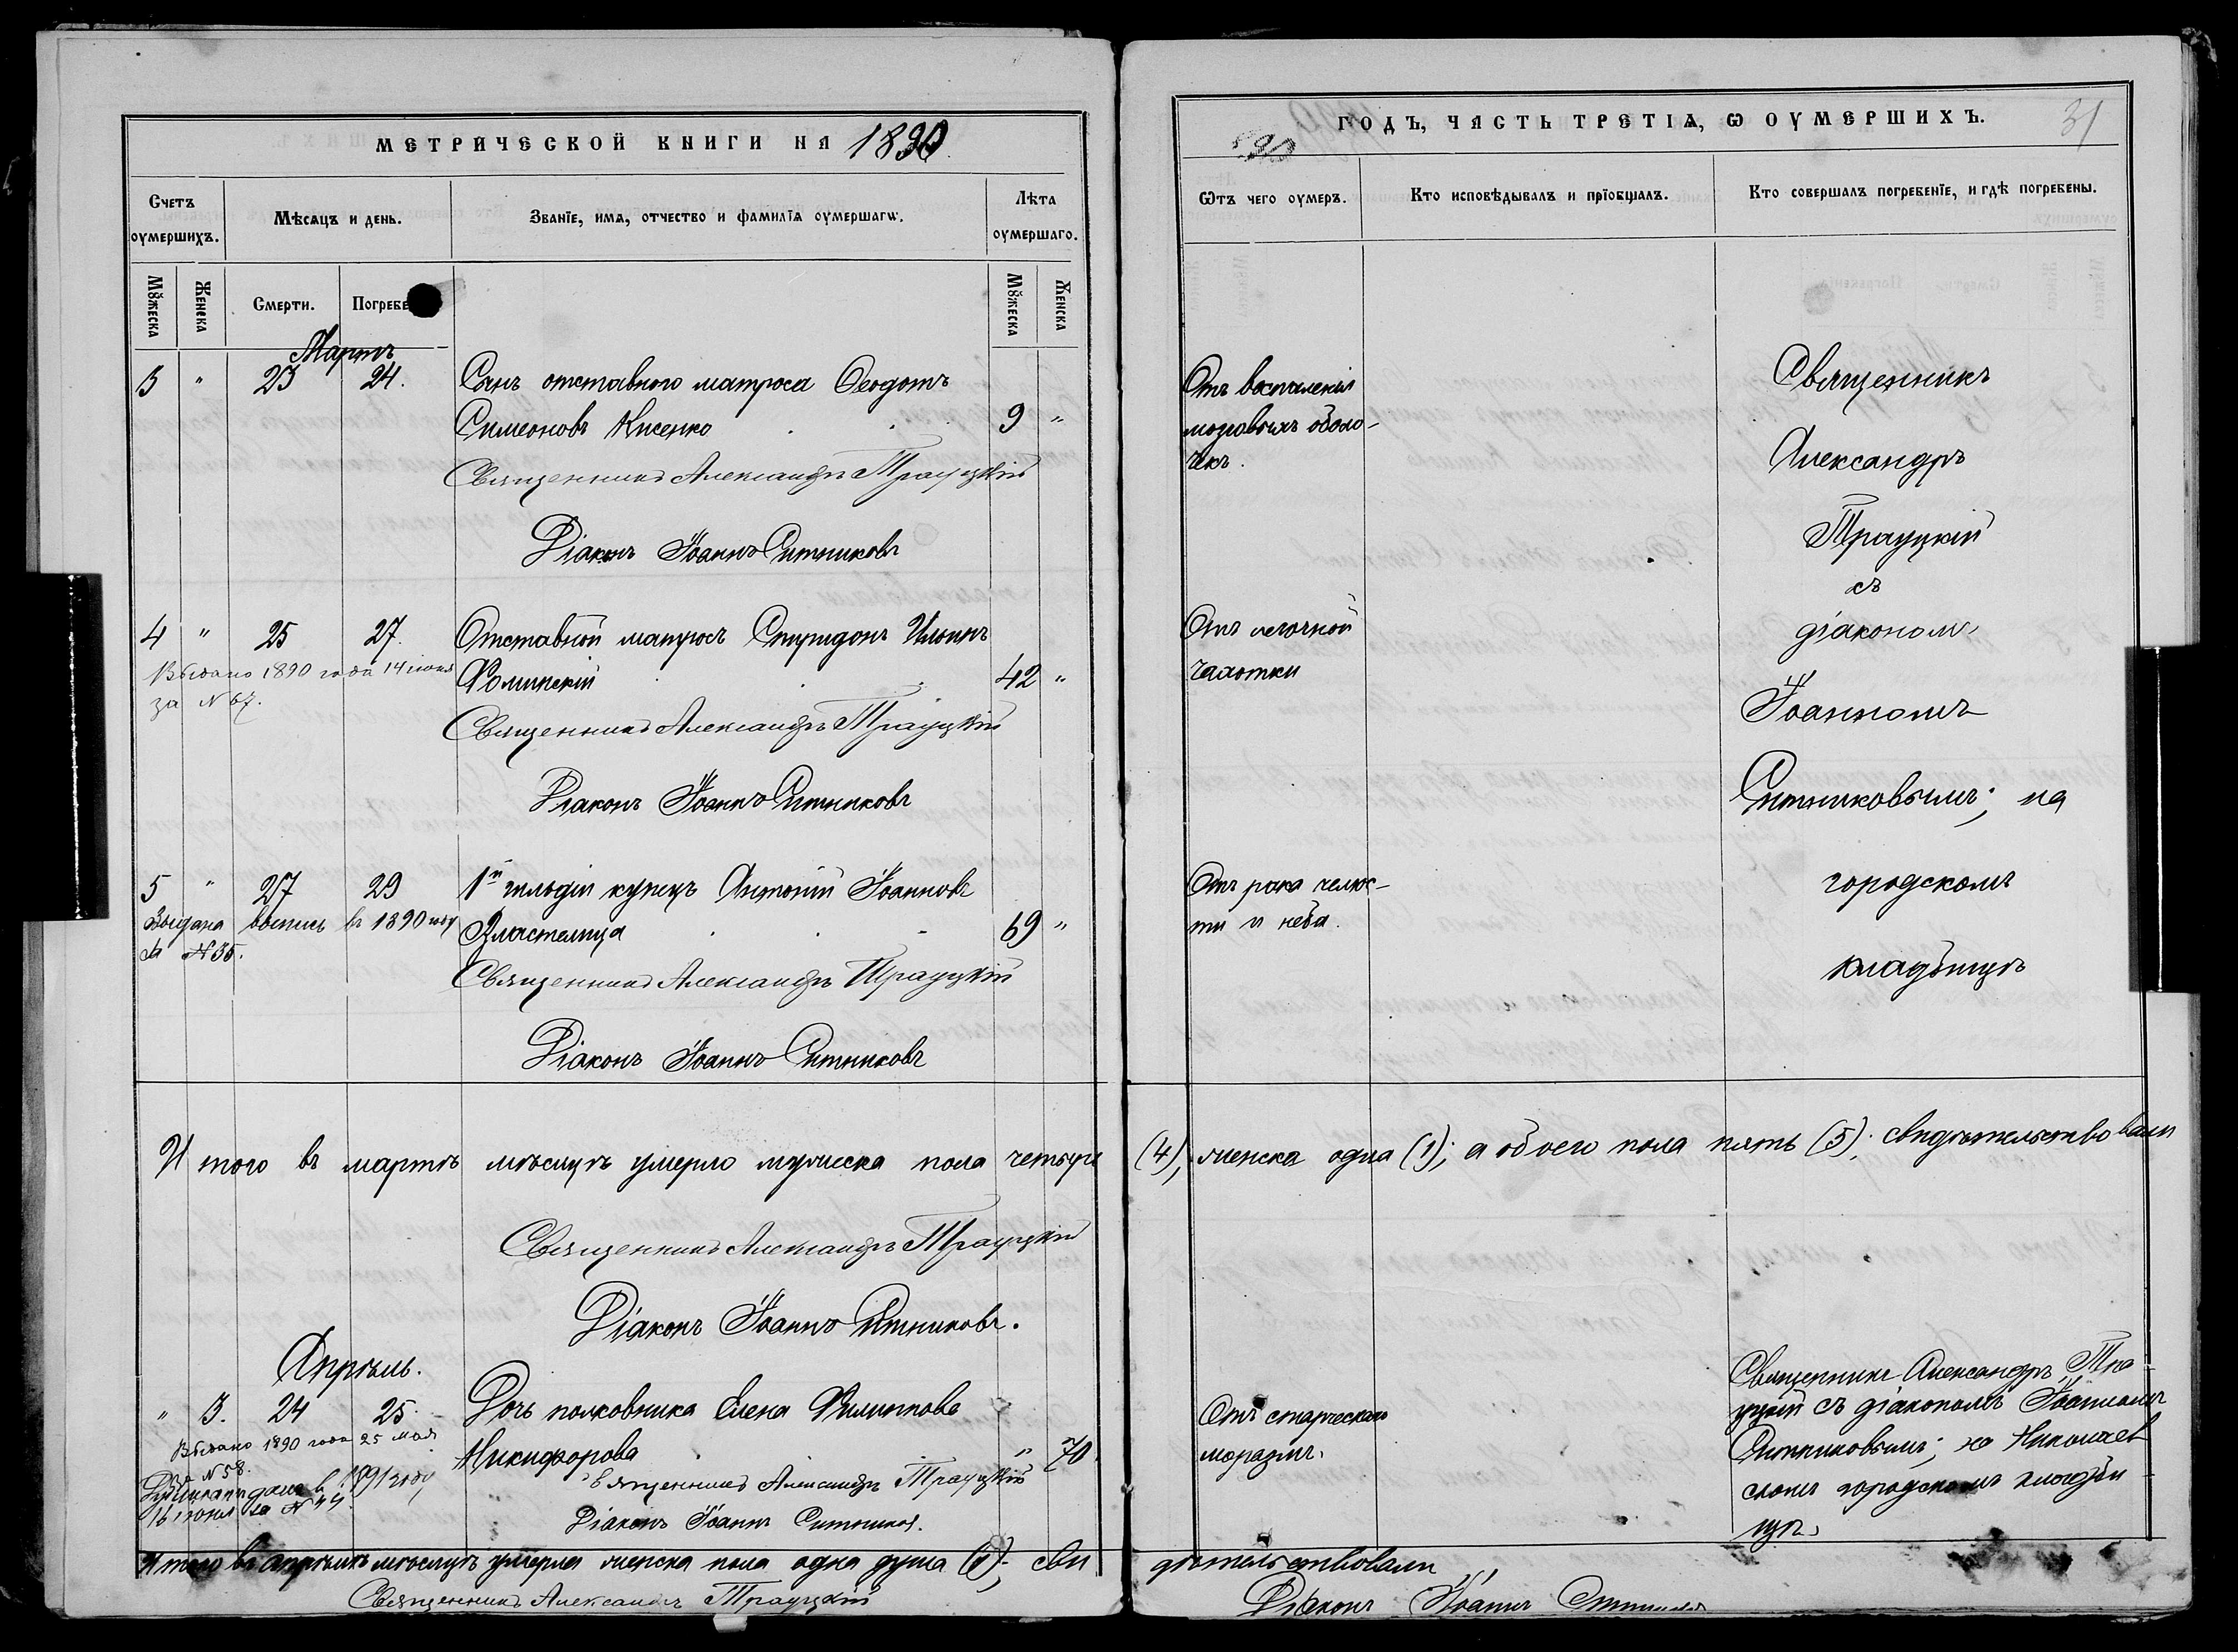 МЕТРИЧЕСКОЙ КНИГИ НА 1890
Счетъ оумершихъ.
Мѣсяцъ и день.
Званіе, имя, отчество и фамилія оумершагѡ.
Лѣта оумершаго.
Мꙋжеска
Женска
Смерти.
Погребе
Мꙋжеска
Женска
Мартъ
3 " 23 24. Сынъ отставного матроса Ѳеодотъ
Симеоновъ Кисенко 9 "
Священникъ Александръ Трауцкій
Діаконъ Іоаннъ Ситниковъ
4 " 25 27. Отставной матросъ Спиридонъ Ильинъ
Выдано 1890 года 14 июня
Фоминскій 42 "
за N 67.
Священникъ Александръ Трауцкій
Діаконъ Іоаннъ Ситниковъ
5 " 27 29 1й гильдіи купецъ Антоній Іоанновъ
Выдана выпись въ 1890 году
Властелица 69 "
за N 35.
Священникъ Александръ Трауцкій
Діаконъ Іоаннъ Ситниковъ
Итого въ мартѣ мѣсяцѣ умерло мужеска пола четыре
Священникъ Александръ Трауцкій
Діаконъ Іоаннъ Ситниковъ.
Апрѣль.
" 3. 24 25 Дочь полковника Елена Филиппова
Выдано 1890 года 25 мая
Никифорова " 70.
за N 58.
Священникъ Александръ Трауцкій
выдана в 1891 году
16 іюня за N 44.
Діаконъ Іоаннъ Ситников.
Итого въ апрѣлѣ мѣсяцѣ умерла женска пола одна душа (1); сви
Священникъ Александръ Трауцкій
ГОДЪ, ЧАСТЬ ТРЕТІЯ, Ѡ ОУМЕРШИХЪ.
31
890
Ѿтъ чего оумеръ.
Кто исповѣдывалъ и пріобщалъ.
Кто совершалъ погребеніе, и гдѣ погребены.
Отъ воспаленія
мозговыхъ оболо-
чекъ.
Священникъ
Александръ
Трауцкій
съ
Отъ легочной
чахотки
діакономъ
Іоанномъ
Ситниковымъ; на
Отъ рака челюс-
ти и неба.
городскомъ
кладбищѣ
(4), женска одна (1); а обоего пола пять (5); свидѣтельствовали
Отъ старческаго
маразма.
Священникъ Александръ Тра-
уцкій съ діакономъ Іоанномъ
Ситниковымъ; на Николаев
скомъ городскомъ кладби-
щѣ.
дѣтельствовали
Діаконъ Іоаннъ Ситниковъ